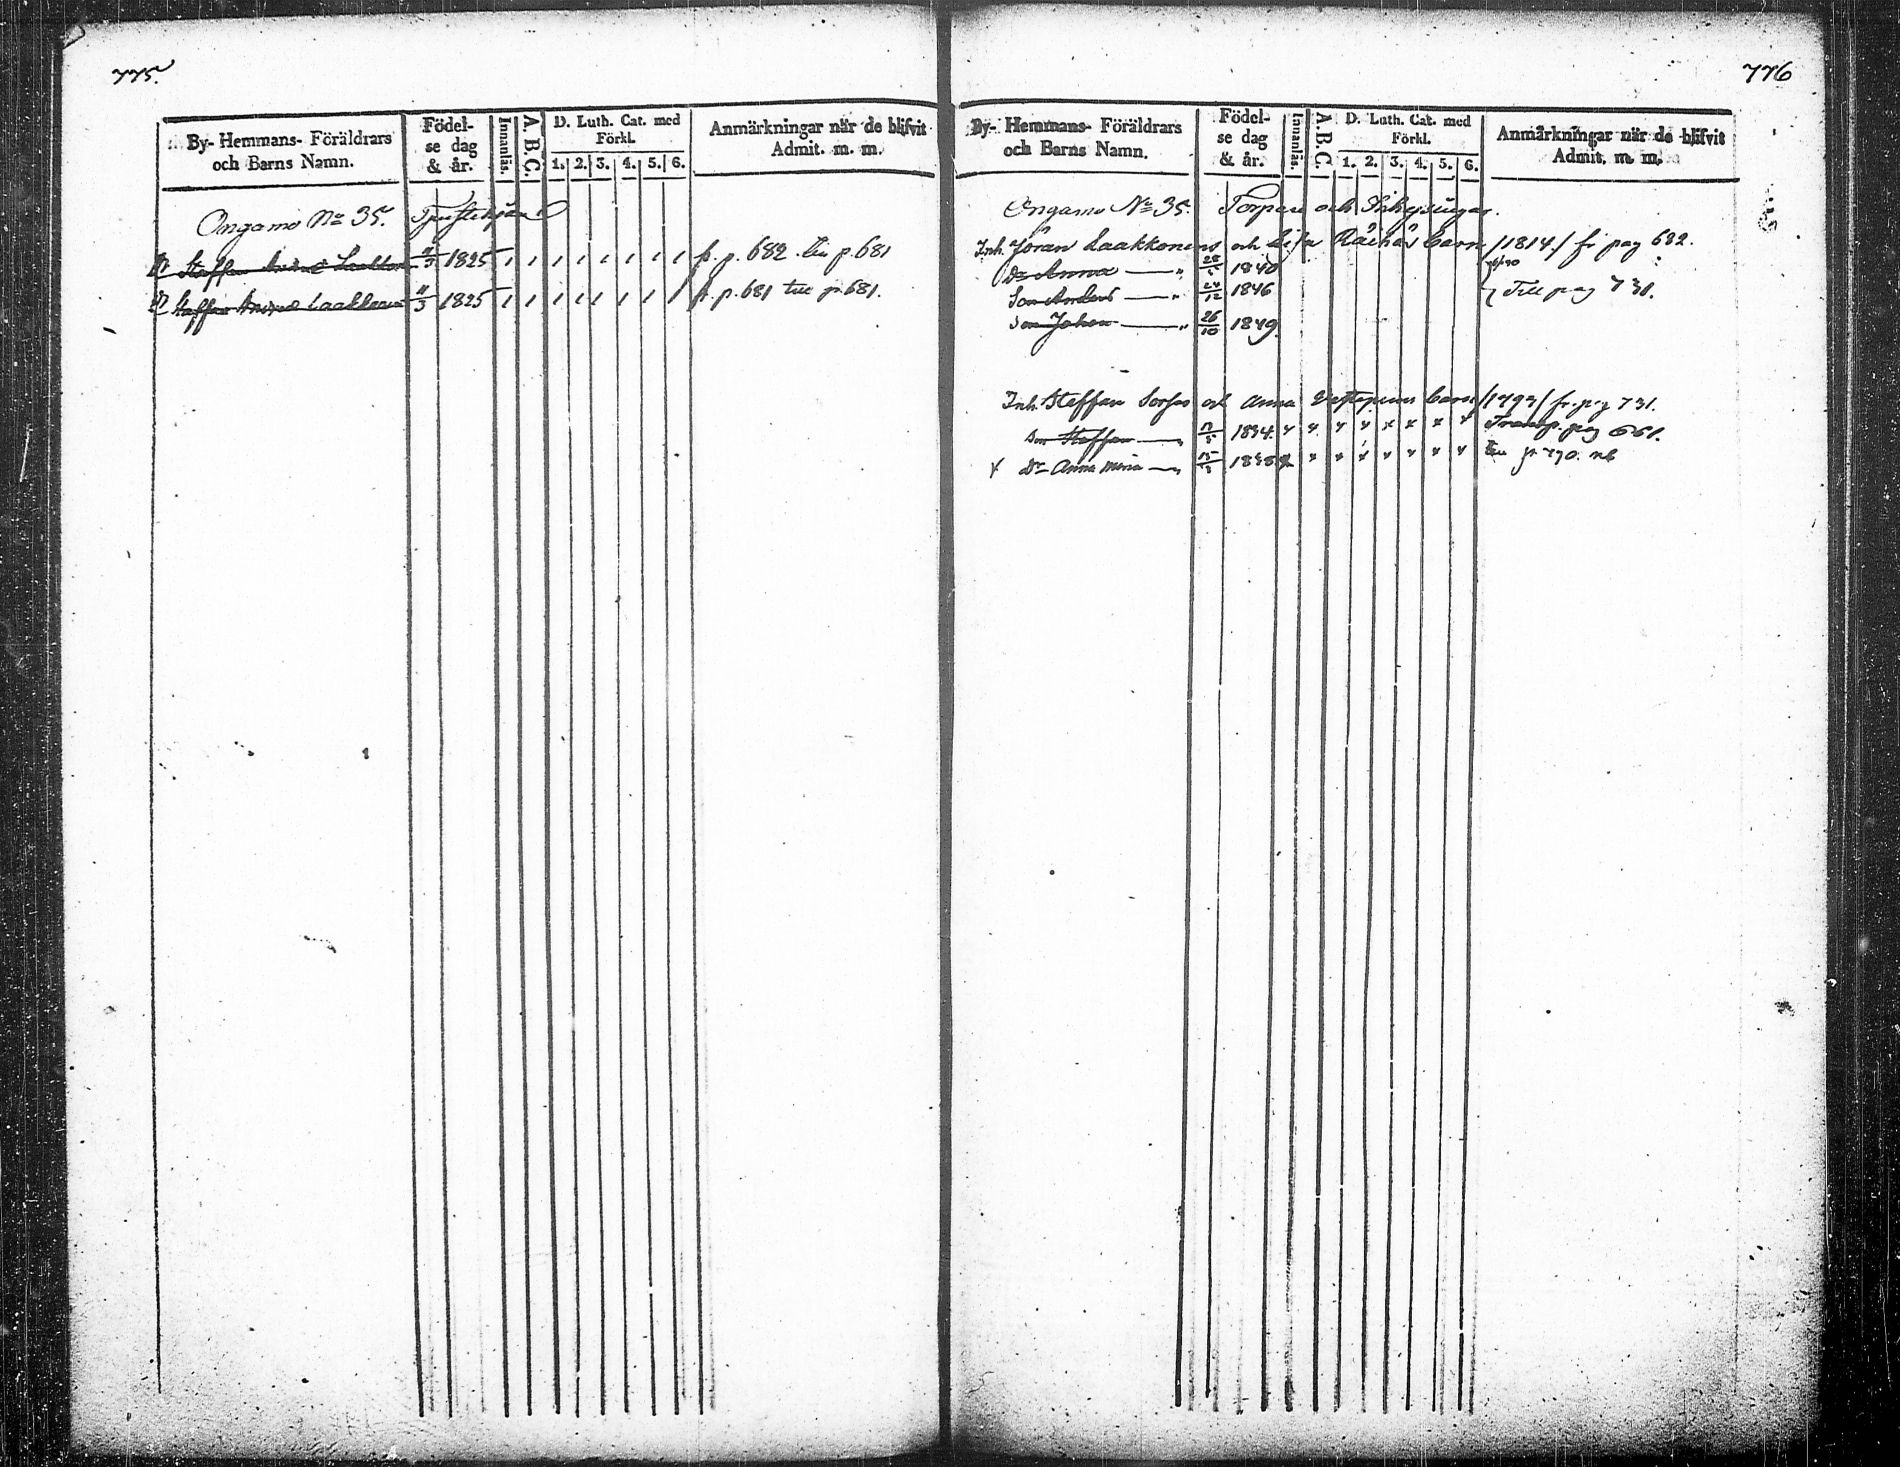 775.
By- Hemmans- Föräldrars och Barns Namn.
Födel- se dag & år.
Innanläs.
A.B.C.
D. Luth. Cat. med Förkl.
1. 2. 3. 4. 5. 6.
Anmärkningar när de blifvit Admit. m. m.
Ongamo No 35.
Dr Staffan 11/3 1825 fr. p. 682 till p. 681
Dr Staffan Laakkonen 11/3 1825 fr. p. 681 till p. 681.
776
By- Hemmans- Föräldrars och Barns Namn.
Födel- se dag & år.
Innanläs.
A.B.C.
D. Luth. Cat. med Förkl.
1. 2. 3. 4. 5. 6.
Anmärkningar när de blifvit Admit. m. m.
Ongamo No 35. Torpare och Inhysingar.
Inh. Jöran Laakkonens och Lisa Räihäs barn /1814/ fr pag 682.
Dr Anna — " 1840
Son Anders — " 24/12 1846 Till pag 731.
Son Johan — " 26/10 1849
Inh. Staffan och Anna barn fr. pag 731.
Son Staffan — " 1834. Transp. pag 661.
x Dr Anna Maria — "